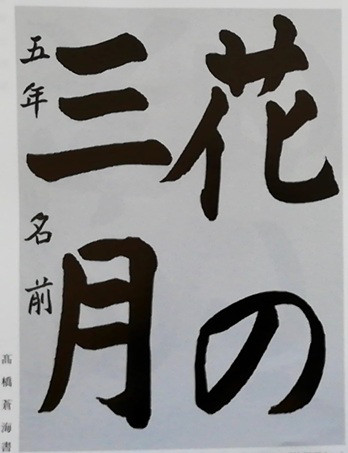 花の
三月
五年 名前
髙橋蒼海書